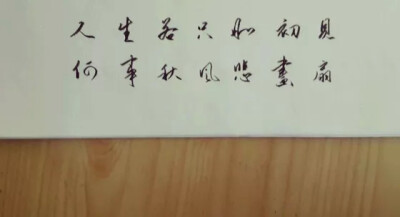 人生若只如初見
何事秋风悲畫扇